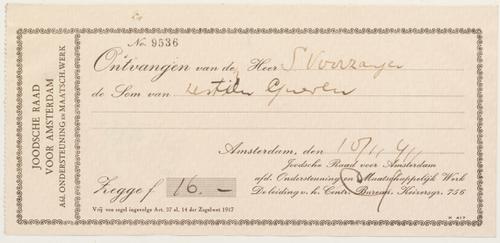 JOODSCHE RAAD
VOOR AMSTERDAM
Afd. ONDERSTEUNING en MAATSCH. WERK
No. 9536
Ontvangen van de Heer S Voorzanger
de Som van zestien Gulden
Amsterdam, den 10/11 41
Joodsche Raad voor Amsterdam
afd. Ondersteuning en Maatschappelijk Werk
De leiding v. h. Centr. Bureau. Keizersgr. 756
Zegge f 16.-
Vrij van zegel ingevolge Art. 37 al. 14 der Zegelwet 1917
K 417